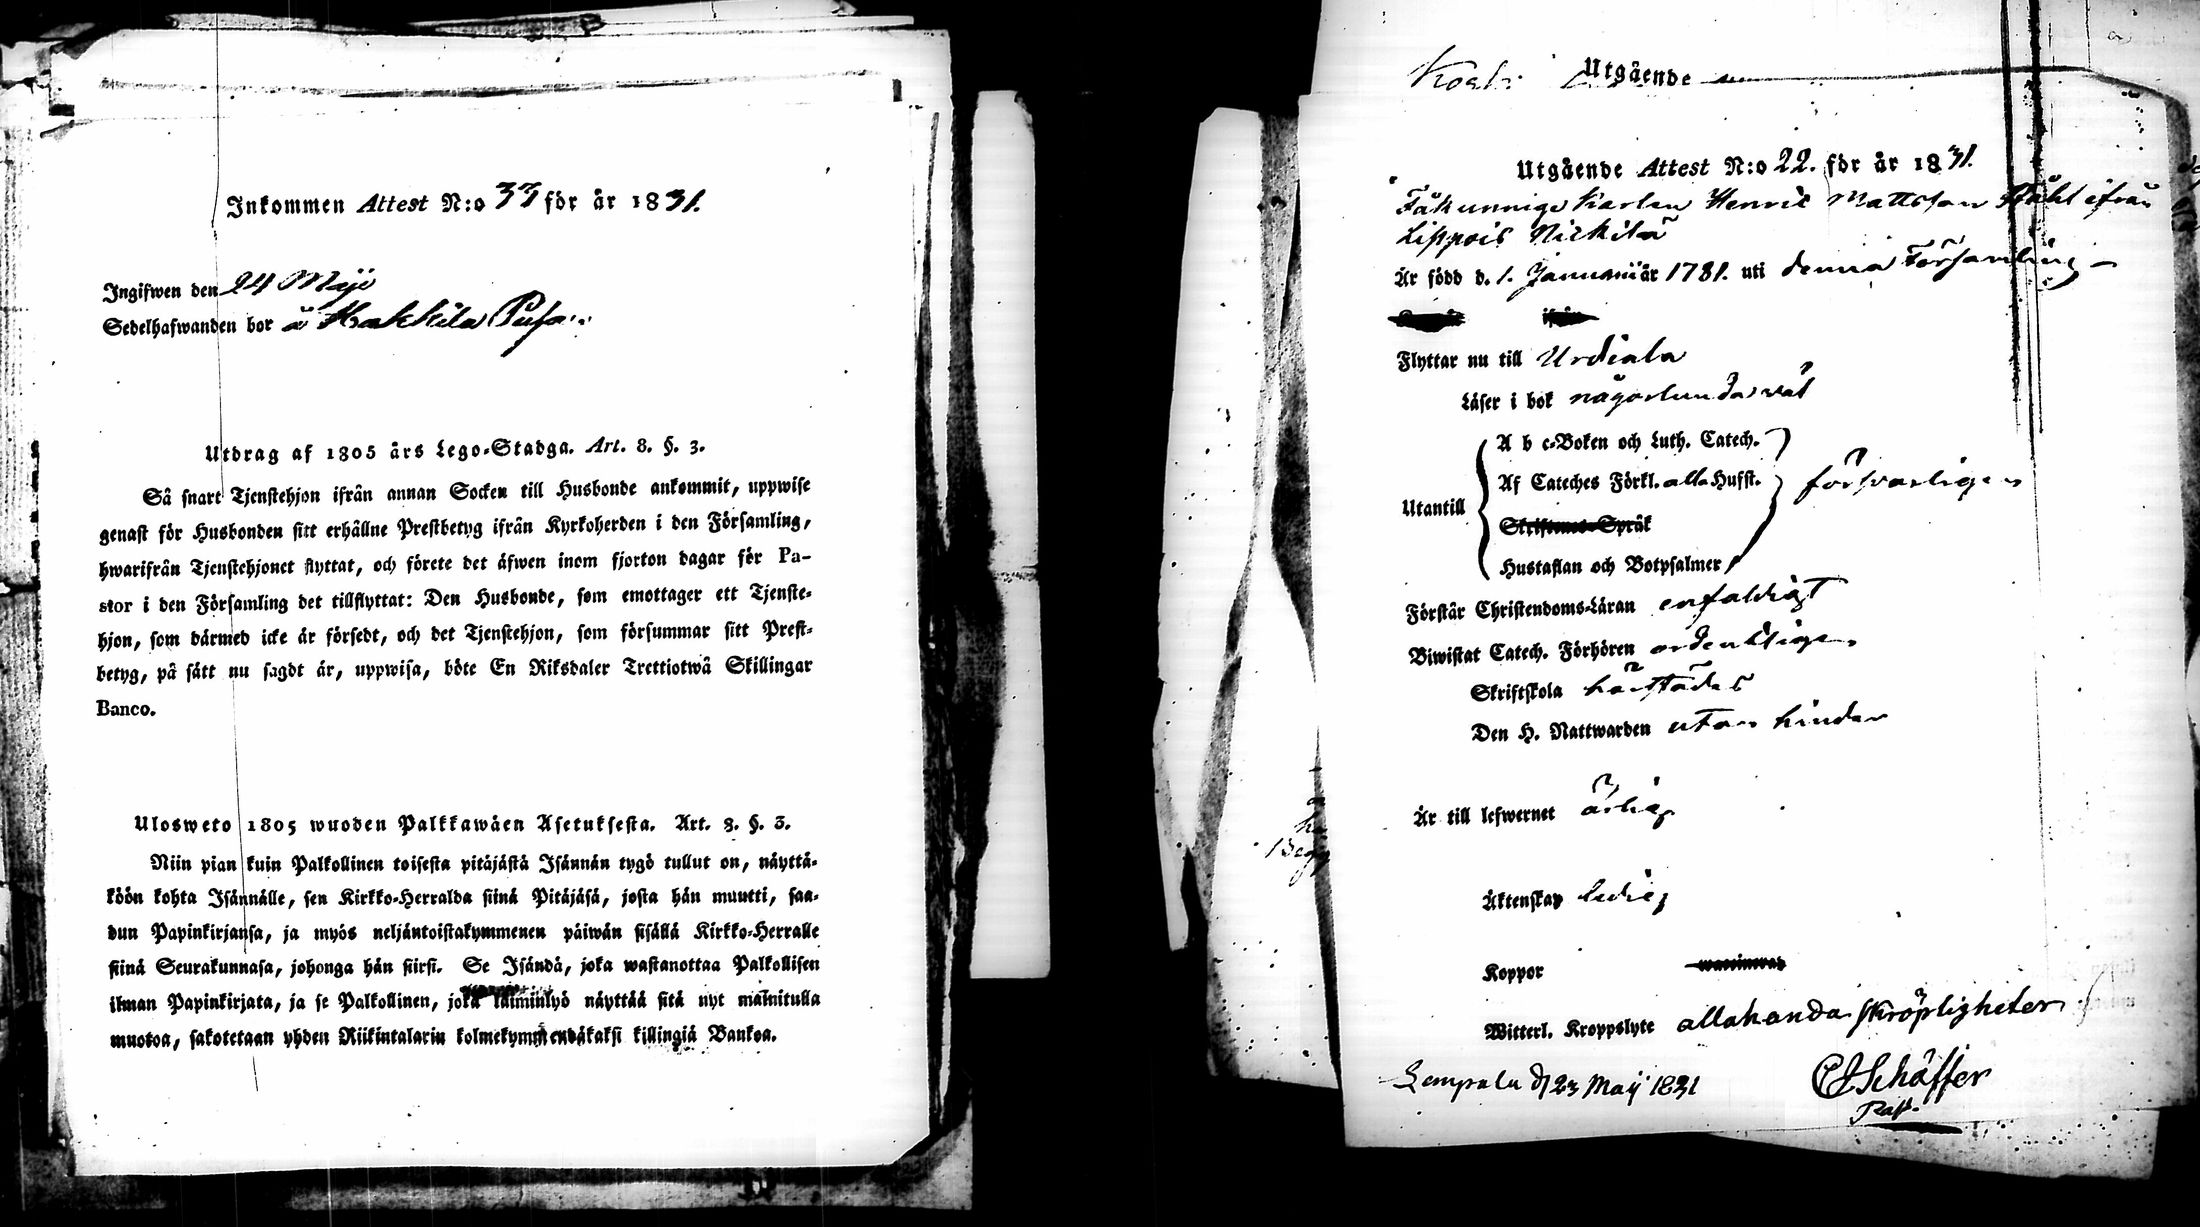 Inkommen Attest N:o 33 för år 1831.
Ingifwen den 24 Maji
Sedelhafwanden bor å Hakkila
Utdrag af 1805 års Lego-Stadga. Art. 8. §. 3.
Så snart Tjenstehjon ifrån annan Socken till Husbonde ankommit, uppwise
genast för Husbonden sitt erhållne Prestbetyg ifrån Kyrkoherden i den Församling,
hwarifrån Tjenstehjonet flyttat, och förete det äfwen inom fjorton dagar för Pa-
stor i den Församling det tillflyttat: Den Husbonde, som emottager ett Tjenste-
hjon, som därmed icke är försedt, och det Tjenstehjon, som försummar sitt Prest-
betyg, på sätt nu sagdt är, uppwisa, böte En Riksdaler Trettiotwå Skillingar
Banco.
Ulosweto 1805 wuoden Palkkawäen Asetuksesta. Art. 8. §. 3.
Niin pian kuin Palkollinen toisesta pitäjästä Isännän tygö tullut on, näyttä-
köön kohta Isännälle, sen Kirkko-Herralda siinä Pitäjäsä, josta hän muutti, saa-
dun Papinkirjansa, ja myös neljäntoistakymmenen päiwän sisällä Kirkko-Herralle
siinä Seurakunnasa, johonga hän siirsi. Se Isändä, joka wastanottaa Palkollisen
ilman Papinkirjata, ja se Palkollinen, joka laiminlyö näyttää sitä nyt mainitulla
muotoa, sakotetaan yhden Riikintalarin kolmekymmendäkaksi killingiä Bankoa.
Utgående
Utgående Attest N:o 22. för år 1831.
Fåkunnige Karlen Henric Mattsson Ståhl ifrån
Lippois Nickilä
Är född d. 1. Januarii år 1781. uti denna Församling
Flyttar nu till Urdiala
Läser i bok någorlunda wäl
A b c-Boken och Luth. Catech.
Af Cateches Förkl. alla Hufst.
försvarligen
Utantill
Skriftenes Språk
Hustaflan och Botpsalmer
Förstår Christendoms-Läran enfaldigt
Biwistat Catech. Förhören ordentligen
Skriftskola härstädes
Den H. Nattwarden utan hinder
Är till lefwernet ärlig
Äktenskap ledig
Koppor
Witterl. Kroppslyte allahanda skröpligheter
Lempälä d 23 Maij 1831
C J Schäffer
Past.